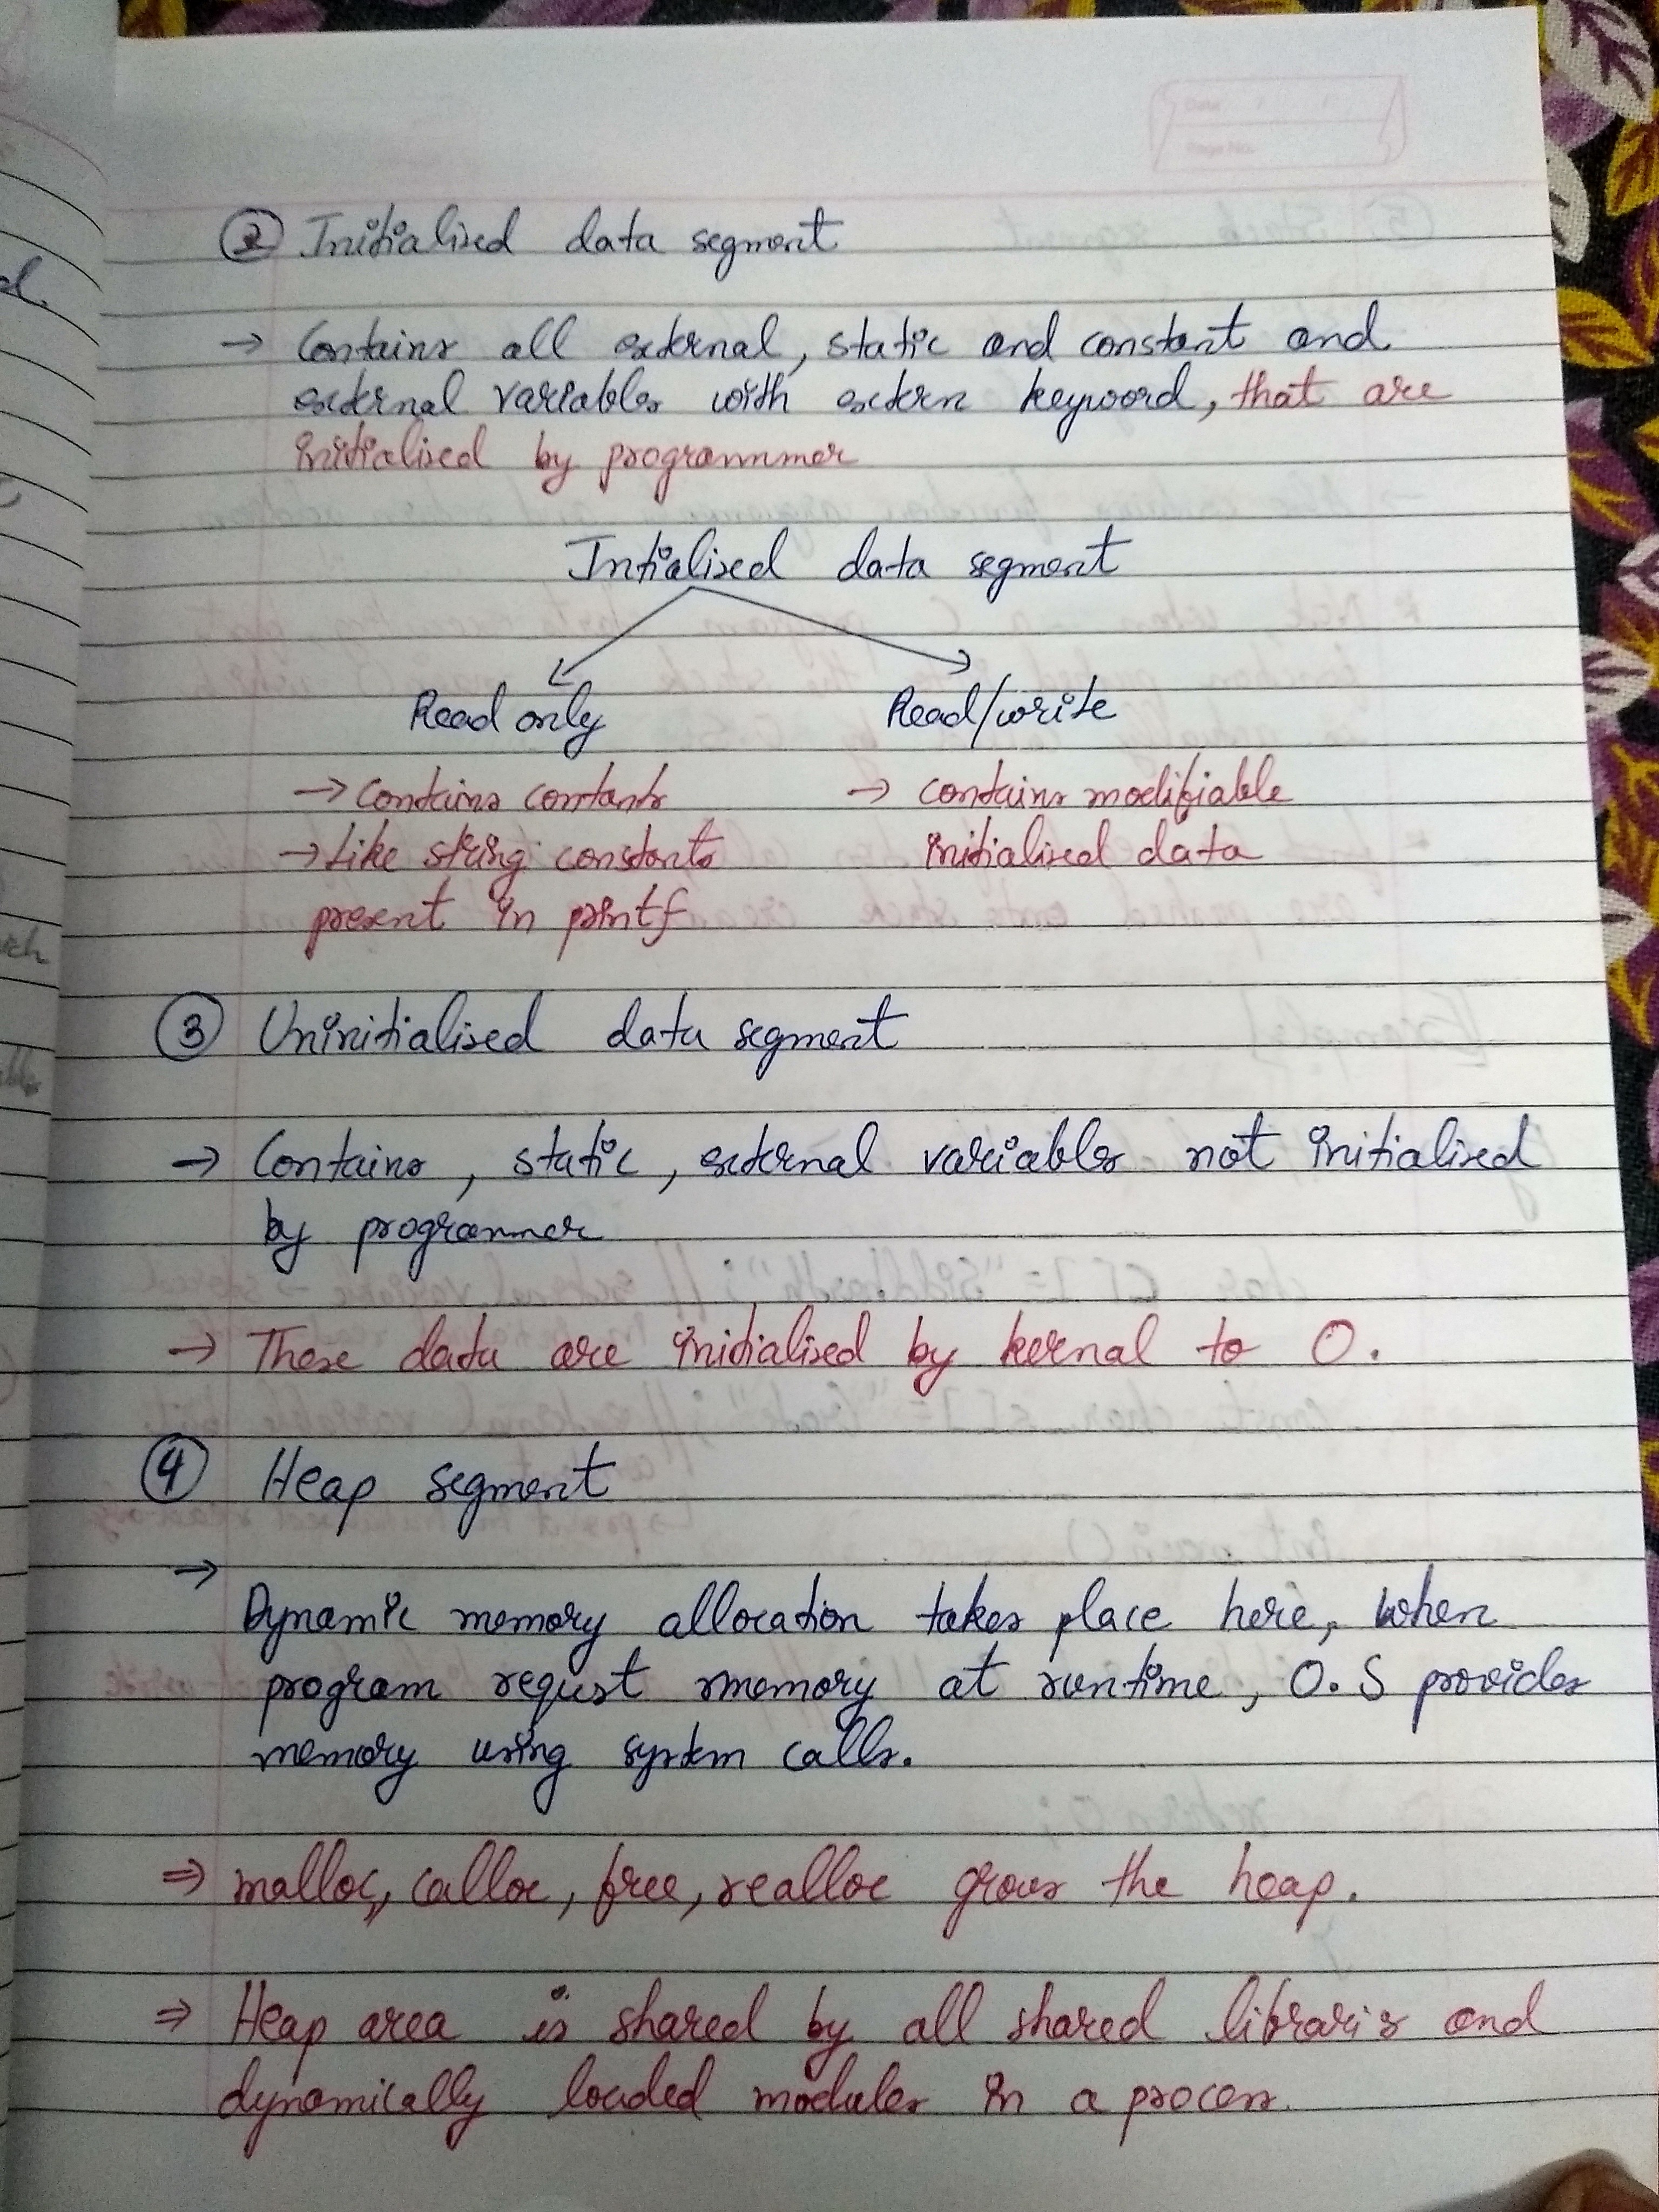 ② Initialised data segment
→ Contains all external, static and constant and
external variables with extern keyword, that are
initialised by programmer
Intialised data segment
Read only Read/write
→ Contains contants → contains modifiable
→ Like string constants initialised data
present in printf
③ Uninitialised data segment
→ Contains, static, external variables not initialised
by programmer
→ These data are initialised by kernal to 0.
④ Heap segment
→
Dynamic memory allocation takes place here, when
program requst memory at runtime, O.S provides
memory using system calls.
⇒ malloc, calloc, free, realloc grows the heap.
⇒ Heap area is shared by all shared libraris and
dynamically loaded modules in a process.